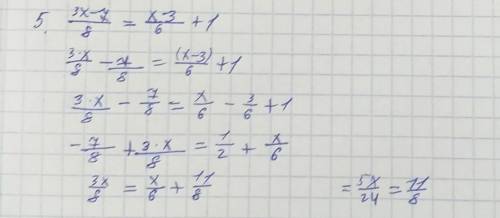 5. (3x-7)/8 = (x-3)/6 + 1
(3·x)/8 - 7/8 = ((x-3))/6 + 1
(3·x)/8 - 7/8 = x/6 - 3/6 + 1
-7/8 + (3·x)/8 = 1/2 + x/6
3x/8 = x/6 + 11/8 = 5x/24 = 11/8